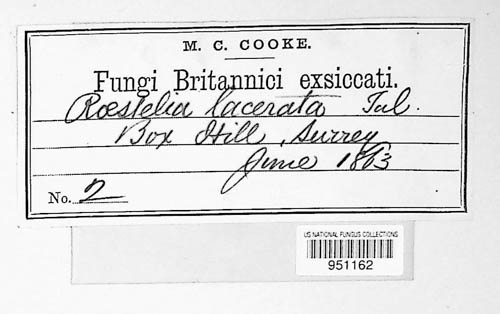 M. C. COOKE.
Fungi Britannici exsiccati.
Rœstelia lacerata Tul.
Box Hill, Surrey
June 1863
No. 2
US NATIONAL FUNGUS COLLECTIONS
951162